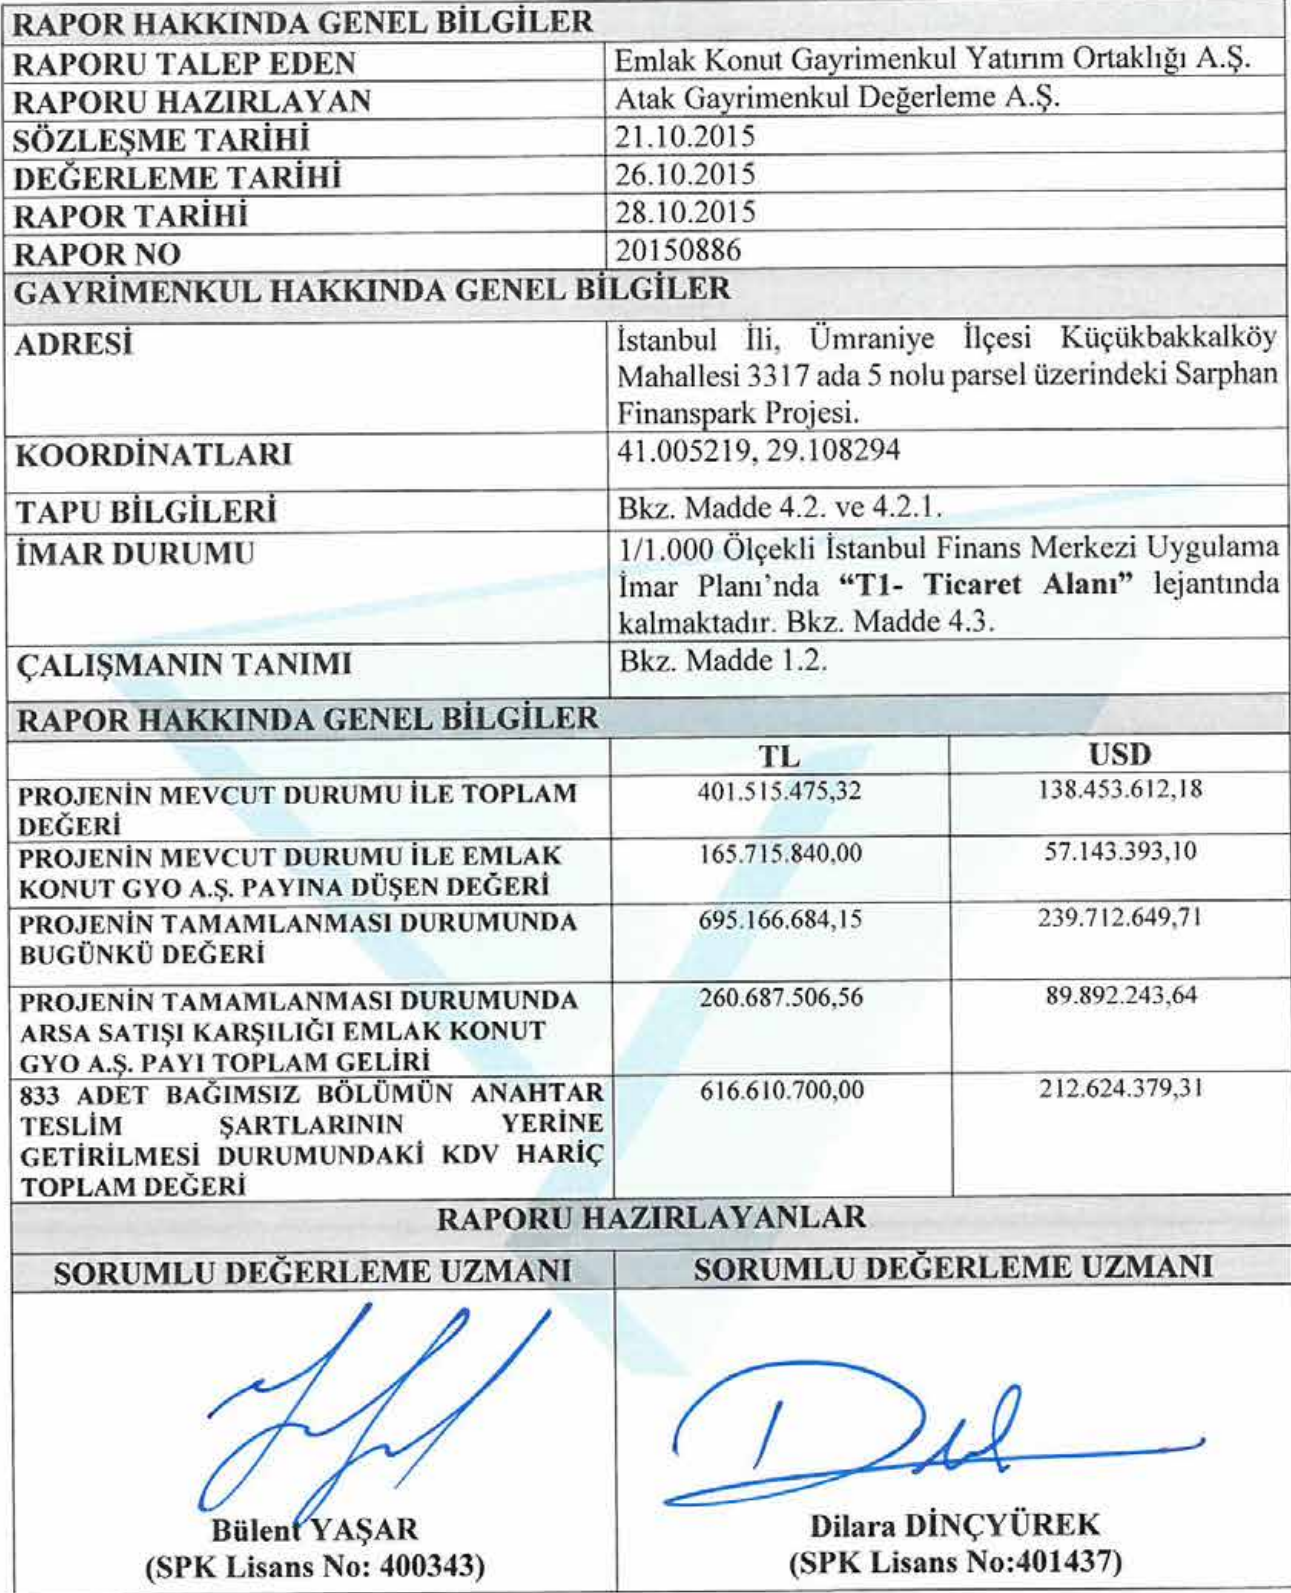 RAPOR HAKKINDA GENEL BİLGİLER
RAPORU TALEP EDEN Emlak Konut Gayrimenkul Yatırım Ortaklığı A.Ş.
RAPORU HAZIRLAYAN Atak Gayrimenkul Değerleme A.Ş.
SÖZLEŞME TARİHİ 21.10.2015
DEĞERLEME TARİHİ 26.10.2015
RAPOR TARİHİ 28.10.2015
RAPOR NO 20150886
GAYRİMENKUL HAKKINDA GENEL BİLGİLER
ADRESİ İstanbul İli, Ümraniye İlçesi Küçükbakkalköy
Mahallesi 3317 ada 5 nolu parsel üzerindeki Sarphan
Finanspark Projesi.
KOORDİNATLARI 41.005219, 29.108294
TAPU BİLGİLERİ Bkz. Madde 4.2. ve 4.2.1.
İMAR DURUMU 1/1.000 Ölçekli İstanbul Finans Merkezi Uygulama
İmar Planı’nda “T1- Ticaret Alanı” lejantında
kalmaktadır. Bkz. Madde 4.3.
ÇALIŞMANIN TANIMI Bkz. Madde 1.2.
RAPOR HAKKINDA GENEL BİLGİLER
TL USD
PROJENİN MEVCUT DURUMU İLE TOPLAM 401.515.475,32 138.453.612,18
DEĞERİ
PROJENİN MEVCUT DURUMU İLE EMLAK 165.715.840,00 57.143.393,10
KONUT GYO A.Ş. PAYINA DÜŞEN DEĞERİ
PROJENİN TAMAMLANMASI DURUMUNDA 695.166.684,15 239.712.649,71
BUGÜNKÜ DEĞERİ
PROJENİN TAMAMLANMASI DURUMUNDA 260.687.506,56 89.892.243,64
ARSA SATIŞI KARŞILIĞI EMLAK KONUT
GYO A.Ş. PAYI TOPLAM GELİRİ
833 ADET BAĞIMSIZ BÖLÜMÜN ANAHTAR 616.610.700,00 212.624.379,31
TESLİM ŞARTLARININ YERİNE
GETİRİLMESİ DURUMUNDAKİ KDV HARİÇ
TOPLAM DEĞERİ
RAPORU HAZIRLAYANLAR
SORUMLU DEĞERLEME UZMANI SORUMLU DEĞERLEME UZMANI
Bülent YAŞAR Dilara DİNÇYÜREK
(SPK Lisans No: 400343) (SPK Lisans No:401437)